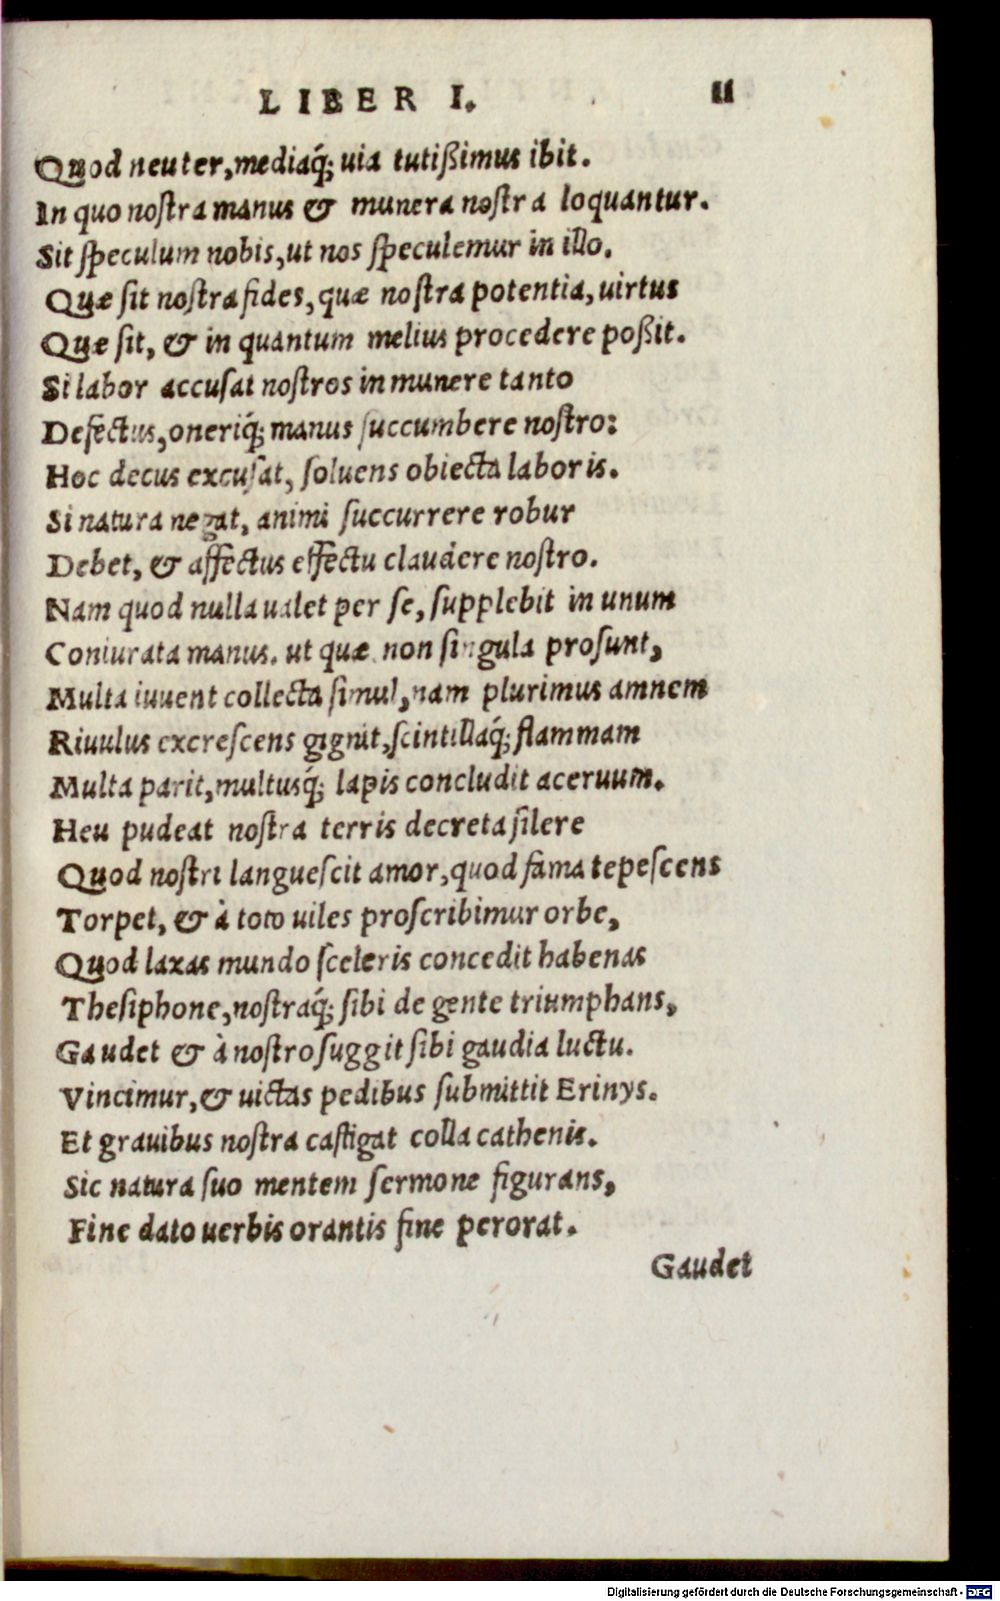 LIBER I. 11
Quod neuter, mediaq́; uia tutißimus ibit.
In quo nostra manus & munera nostra loquantur.
Sit speculum nobis, ut nos speculemur in illo.
Quæ sit nostra fides, quæ nostra potentia, uirtus
Quæ sit, & in quantum melius procedere poßit.
Si labor accusat nostros in munere tanto
Defectus, oneriq́; manus succumbere nostro:
Hoc decus excusat, soluens obiecta laboris.
Si natura negat, animi succurrere robur
Debet, & affectus effectu claudere nostro.
Nam quod nulla ualet per se, supplebit in unum
Coniurata manus. ut quæ non singula prosunt,
Multa iuuent collecta simul, nam plurimus amnem
Riuulus excrescens gignit, scintillaq́; flammam
Multa parit, multusq́; lapis concludit aceruum.
Heu pudeat nostra terris decreta silere
Quod nostri languescit amor, quod fama tepescens
Torpet, & à toto uiles proscribimur orbe,
Quod laxas mundo sceleris concedit habenas
Thesiphone, nostraq́; sibi de gente triumphans,
Gaudet & à nostro suggit sibi gaudia luctu.
Vincimur, & uictas pedibus submittit Erinys.
Et grauibus nostra castigat colla cathenis.
Sic natura suo mentem sermone figurans,
Fine dato uerbis orantis fine perorat.
Gaudet
Digitalisierung gefördert durch die Deutsche Forschungsgemeinschaft - DFG